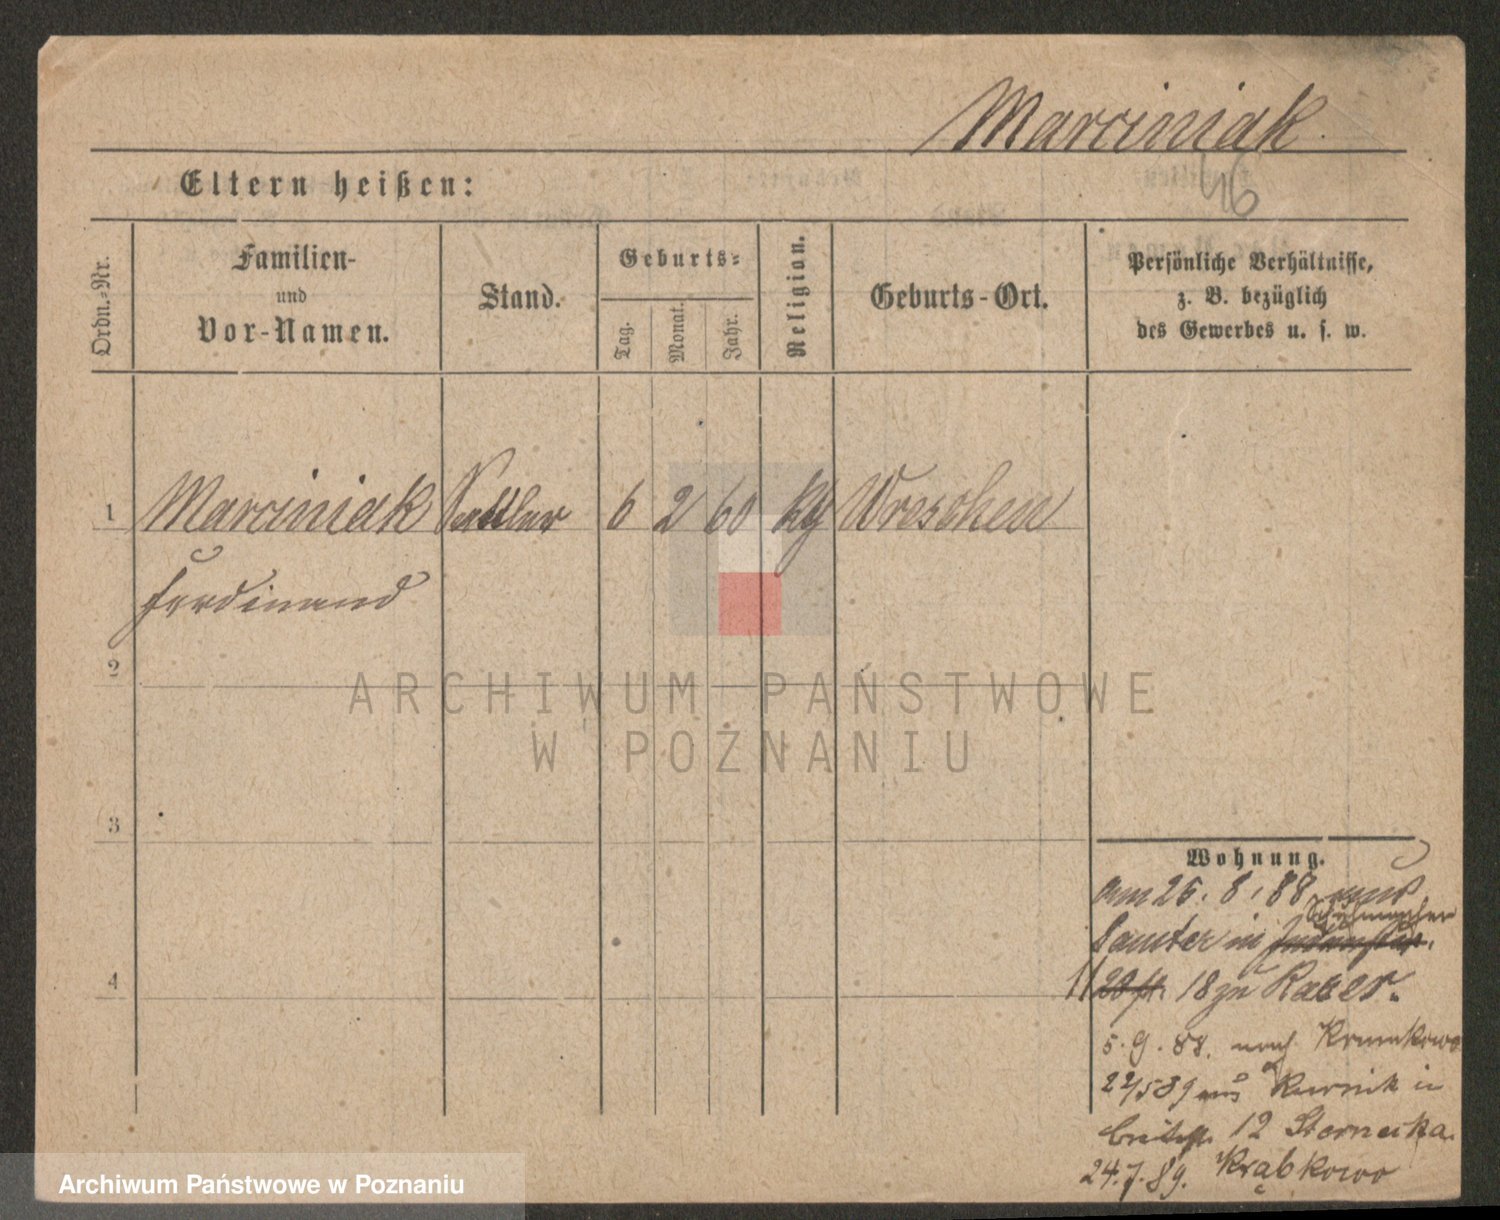 Marciniak.
46
Eltern heißen:
Ordn.-Nr.
Familien-
und
Vor-Namen.
Stand.
Geburts-
Tag.
Monat.
Jahr.
Religion.
Geburts-Ort.
Persönliche Verhältnisse,
z. B. bezüglich
des Gewerbes u. s. w.
1 Marciniak Sattler 6 2 60 kg Wreschen
Ferdinand
2
3
4
Wohnung.
am 26. 8. 88 aus
Schuhmacher
Samter in
11 18 zu Racer.
5. 9. 88. nach
22/5 89 aus Kurnik in
Breitestr. 12
24.7.89. Krąbkowo
ARCHIWUM PAŃSTWOWE
W POZNANIU
Archiwum Państwowe w Poznaniu